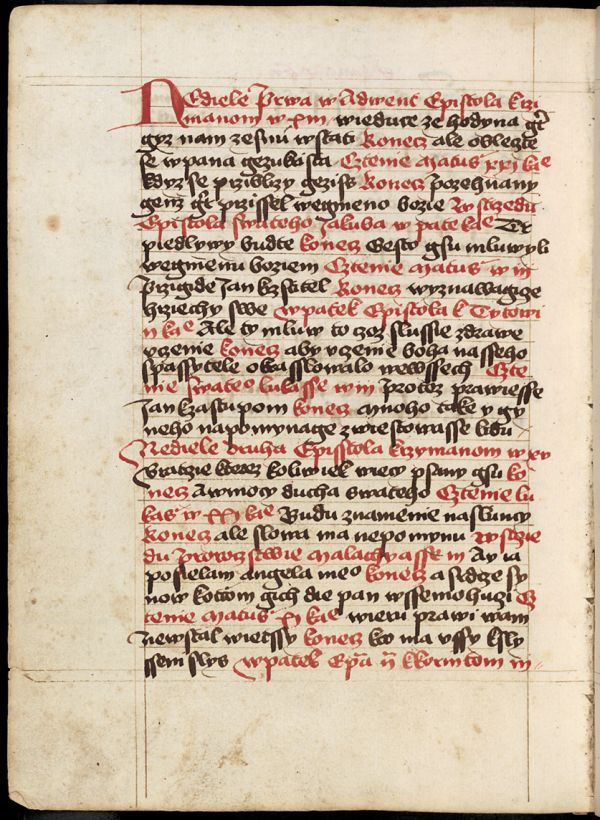 NEdiele Prwa w Adwent Epistola krzi
manom w xiii wieduce ze hodyna gt
gyz nam ze snu wstati Konecz ale oblezte
se w pana gezukrista Cztenie Matus xxi kae
kdyz se prziblizy gezifs Konecz Pozehnany
genz gt przissel wegmeno bozie W strzedu
Epistola swateho Jakuba w pate kae Tr
piedlywy budte konecz Gesto gsu mluwyli
wegmenu boziem Cztenie Matus w iii
Przigide Jan krzstitel Konecz wyznawagicze
hrziechy swe w patek Epistola k Tytowi
ii kae Ale ty mluw to czoz slussie zdrawe
uczenie konecz aby uczenie boha nasseho
spassytele okrasslowalo wewssech Czte
nie swateo lukasse w iii Protoz prawiesse
Jan kzastupom konecz Mnoho take y gy
neho napomynage zwiestowasse lidu
Nediele druha Episstola krzymanom w xv
Bratrzie kterez koliwiek wiecy psany gsu ko
necz A w moczy ducha swateho Cztenie lu
kas w xxi kae Budu znamenie na sluncy
Konecz ale slowa ma nepomynu W strzie
du Proroczstwie malachyasse iii Ay ia
posielam angela meo konecz a sudcze sy
now kotom gich die pan wssemohuzi Cz
tenie Matus xi kae wieru prawi wam
Newstal wietssy konecz kto ma ussy k sly
ssem slys w patek Epa ii kkorintom iii